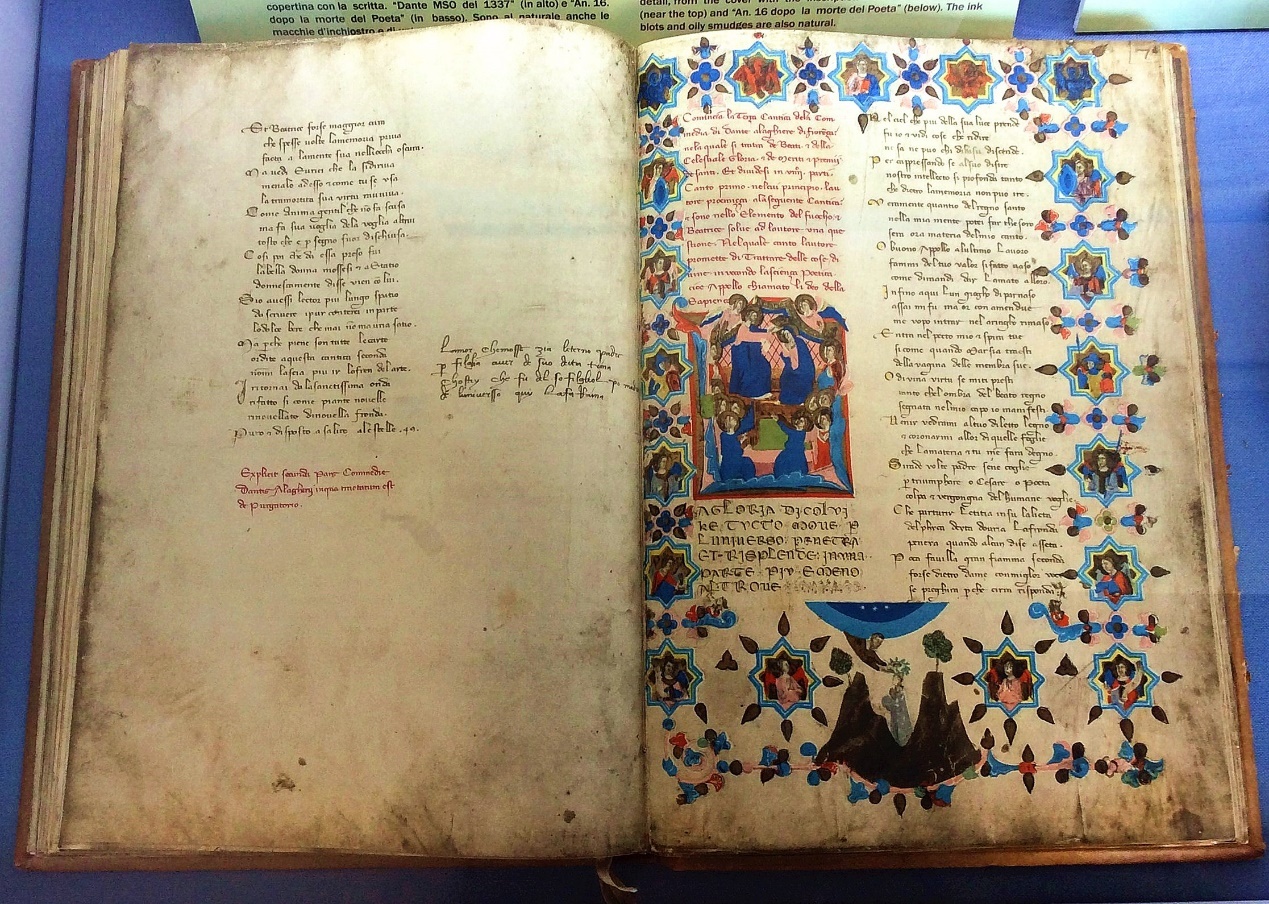 copertina con la scritta. "Dante MSO del 1337" (in alto) e "An. 16.
dopo la morte del Poeta" (in basso). Sono al naturale anche le
macchie d'inchiostro e di
(near the top) and "An. 16 dopo la morte del Poeta" (below). The ink
blots and oily smudges are also natural.
Et Beatrice forse maggior cura
che spesse volte lamemoria priva
facta a lamente sua nellocchi oscura.
Ma vedi Eunoe che la diriva
menalo adesso & come tu se usa
la tramortita sua virtu raviva.
Come anima gentil che no fa scusa
ma fa sua voglia dela voglia altrui
tosto che e p segno fuor dischiusa.
Cosi poi che di essa preso fui
labella donna mossesi & a Statio
donnescamente disse vieni co lui.
Sio avessi lector piu lungo spatio
da scrivere i pur conterei in parte
lodolce bere che mai no mavria satio.
Ma perche piene son tutte lecarte
ordite aquesta cantica seconda
nomi lascia piu ir lofren del arte.
I ritornai da lasanctissima onda
rifatto si come piante novelle
rinovellate dinovella fronda.
Puro & disposto a salire ale stelle.
Explicit secunda Pars Commedie
Dantis Alagherii in qua tractatum est
de Purgatorio.
Lamor che mosse zia leterno padre
p figlia aver de sua
che fu del so figliol
de luniverso qui la fa
Comincia la Terça Cantica dela Com
media di Dante alaghiere di fiorença
nela quale si tratta de Beati & dela
Celestiale Gloria. & de meriti & premii
de santi. Et dividesi in viiij. parti.
Canto primo nelcui principio lau
tore prohemiça alaseguente Cantica
& sono nello Elemento del fuocho &
Beatrice solve ad lautore una que
stione. Nelquale canto lautore
promette di Trattare delle cose di
vine invocando lasciença Poetica
cioe Appollo chiamato li deo della
Sapiença
LAGLORIA DI COLUI
KE TUCTO MOVE P
LUNIVERSO PENETRA
ET RISPLENDE IN UNA
PARTE PIU E MENO
ALTROVE
Nel ciel che piu della sua luce prende
fu io & vidi cose che ridire
ne sa ne puo chi di lassu discende.
Per cappressando se alsuo disire
nostro intellecto si profonda tanto
che dietro lamemoria non puo ire.
Veramente quantio del regno santo
nella mia mente potei far thesoro
sera ora materia delmio canto.
O buono Appollo alultimo Lavoro
fammi del tuo valor si fatto vaso
come dimandi dar lamato alloro.
Infino aqui lun giogo di parnaso
assai mi fu ma or con amendue
me vopo intrar nel aringho rimaso
Entra nel pecto mio & spira tue
si come quando Marsia traesti
della vagina delle membra sue.
O divina virtu se mi presti
tanto che lombra del beato regno
segnata nelmio capo io manifesti
Venir vedrami altuo diletto legno
& coronarmi allor di quelle foglie
che lamateria & tu me farai degno.
Si rade volte padre sene coglie
p triumphare o Cesare o Poeta
colpa & vergongna del humane voglie
Che parturir letitia insu lalieta
delphica deita dovria lafronda
peneia quando alcun dise asseta.
Poca favilla gran fiamma seconda
forse dietro dame con miglior voci
se preghera pche cirra risponda